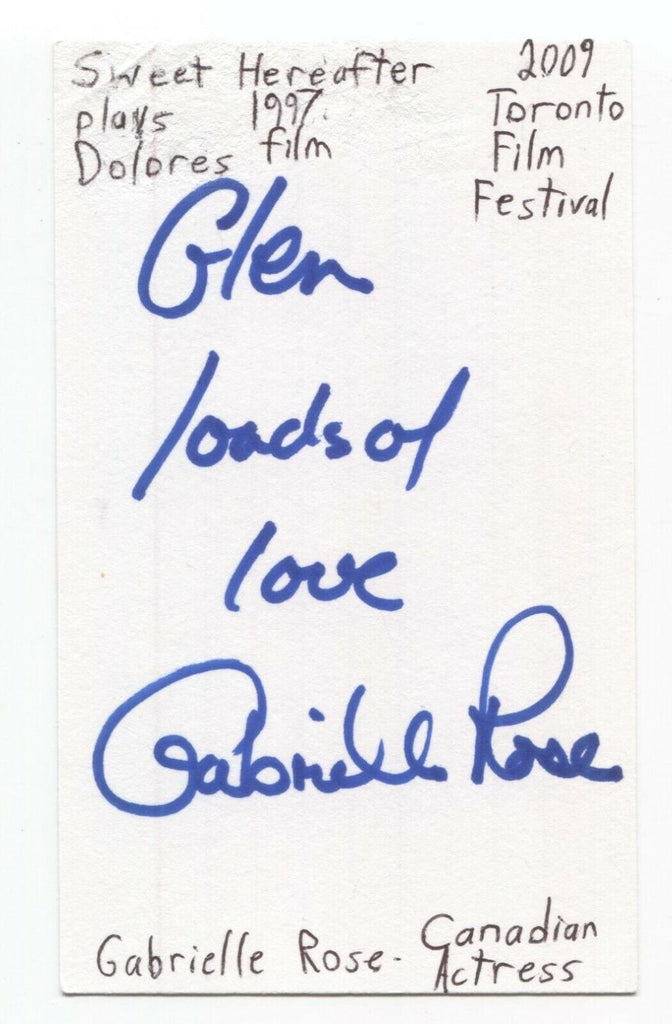 Sweet Hereafter
plays 1997.
Dolores film
2009
Toronto
Film
Festival
Glen
loads of
love
Gabrielle Rose
Gabrielle Rose- Canadian
Actress